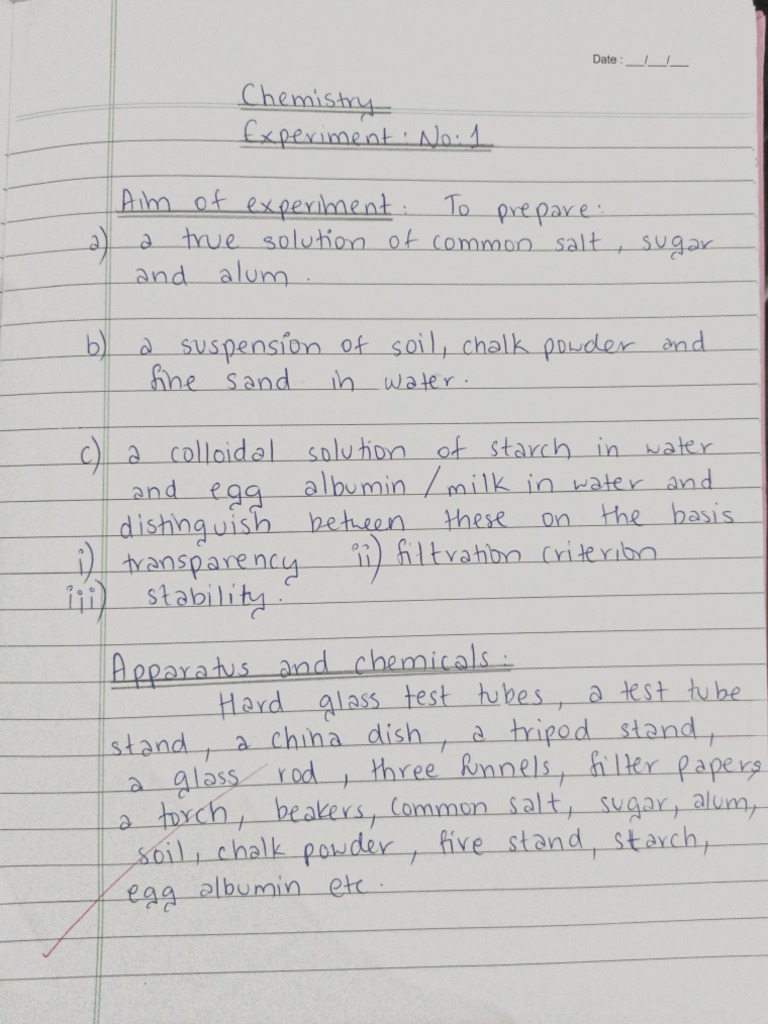 Date : __/__/__
Chemistry
Experiment: No: 1
Aim of experiment: To prepare:
a) a true solution of common salt, sugar
and alum.
b) a suspension of soil, chalk powder and
fine sand in water.
c) a colloidal solution of starch in water
and egg albumin / milk in water and
distinguish between these on the basis
i) transparency ii) filtration criterion
iii) stability.
Apparatus and chemicals:
Hard glass test tubes, a test tube
stand, a china dish, a tripod stand,
a glass rod, three funnels, filter papers
a torch, beakers, common salt, sugar, alum,
soil, chalk powder, five stand, starch,
egg albumin etc.